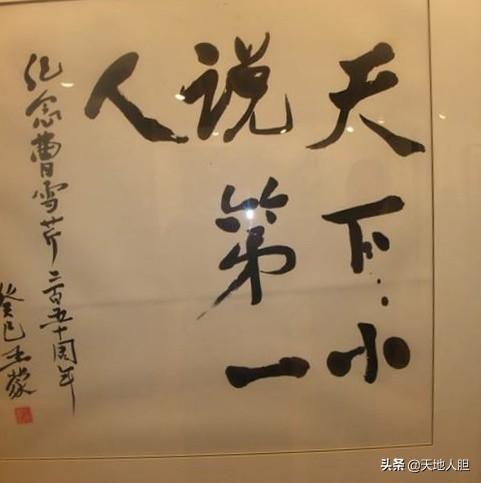 天下小
说第一
人
纪念曹雪芹二百五十周年
癸巳王蒙
头条 @天地人胆